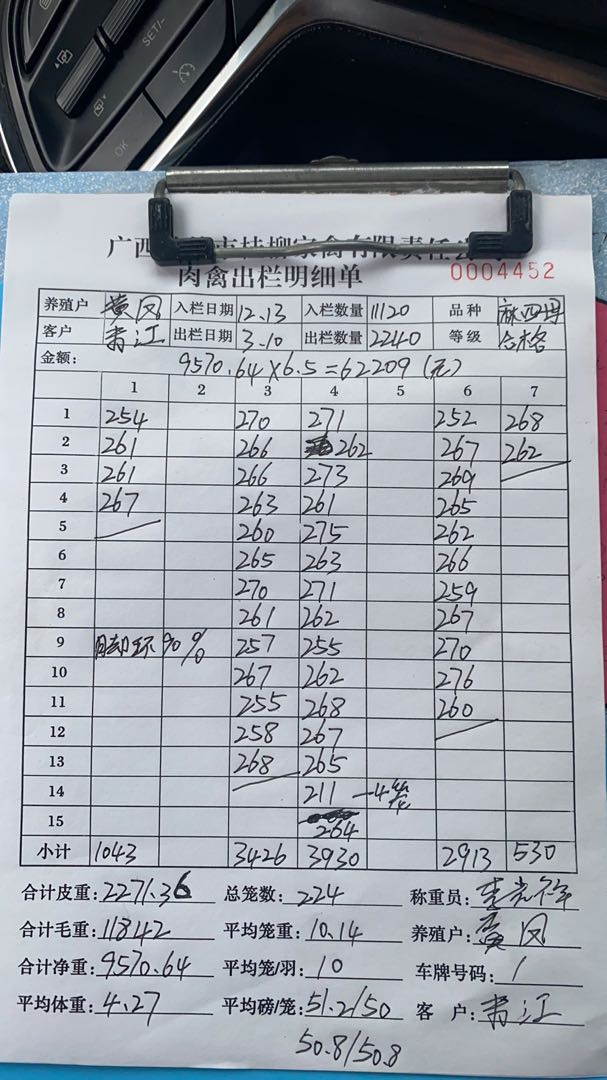 SET/-
OK
广西 市桂柳家禽有限责任公
肉禽出栏明细单
0004452
养殖户 黄凤 入栏日期 12.13 入栏数量 11120 品种 麻四
客户 青江 出栏日期 3.10 出栏数量 2240 等级 合格
金额: 9570.64×6.5=62209(元)
1 2 3 4 5 6 7
1 254 270 271 252 268
2 261 266 262 267 262
3 261 266 273 269
4 267 263 261 265
5 260 275 262
6 265 263 266
7 270 271 259
8 261 262 267
9 脚环 90% 257 255 270
10 267 262 276
11 255 268 260
12 258 267
13 268 265
14 211 —4笼
15 264
小计 1043 3426 3930 2913 530
合计皮重: 2271.36 总笼数: 224 称重员:
合计毛重: 11842 平均笼重: 10.14 养殖户: 黄凤
合计净重: 9570.64 平均笼/羽: 10 车牌号码: /
平均体重: 4.27 平均磅/笼: 51.2/50 客 户: 青江
50.8/50.8